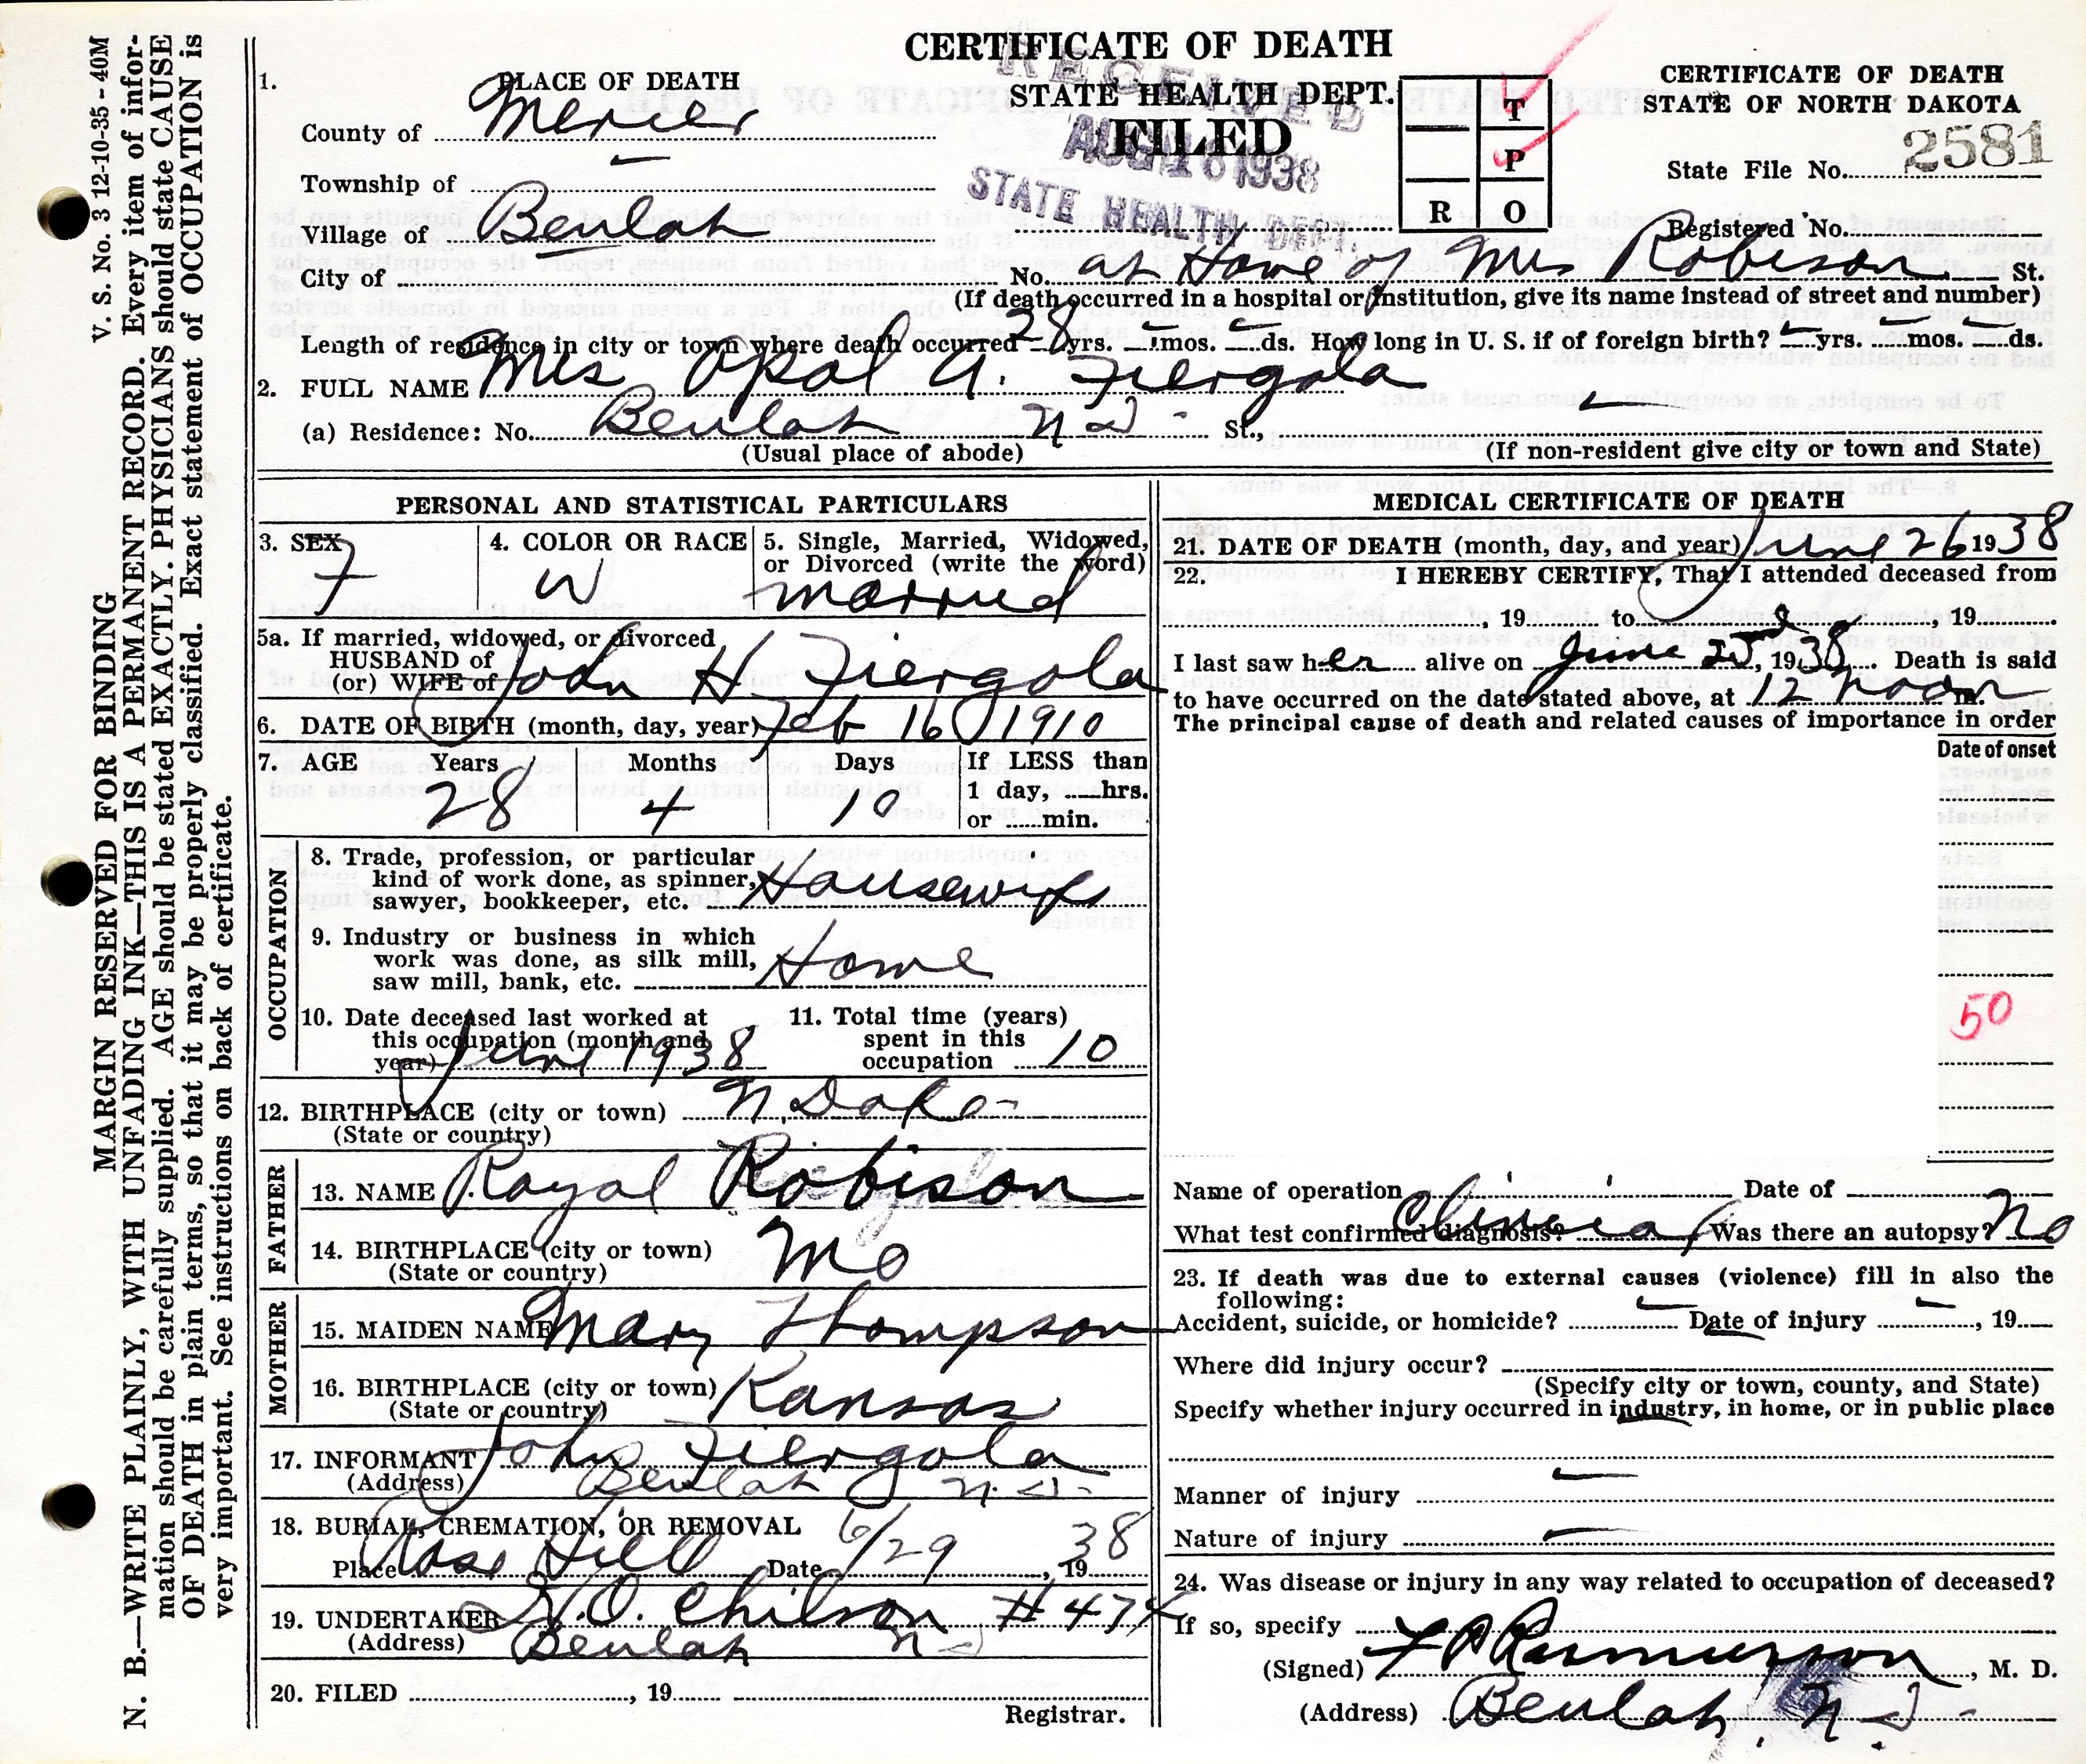 CERTIFICATE OF DEATH
1. PLACE OF DEATH
STATE HEALTH DEPT.
FILED
RECEIVED
AUG 16 1938
STATE HEALTH DEPT.
T
P
R O
CERTIFICATE OF DEATH
STATE OF NORTH DAKOTA
State File No. 2581
Registered No.
County of Mercer
Township of
Village of Beulah
City of - No. at Home of Mrs Robison St.
(If death occurred in a hospital or institution, give its name instead of street and number)
Length of residence in city or town where death occurred 28 yrs. mos. ds. How long in U. S. if of foreign birth? yrs. mos. ds.
2. FULL NAME Mrs Opal A. Fiergola
(a) Residence: No. Beulah N D - St.,
(Usual place of abode) (If non-resident give city or town and State)
PERSONAL AND STATISTICAL PARTICULARS
3. SEX F
4. COLOR OR RACE W
5. Single, Married, Widowed,
or Divorced (write the word)
married
5a. If married, widowed, or divorced
HUSBAND of
(or) WIFE of John H Fiergola
6. DATE OF BIRTH (month, day, year) Feb 16 1910
7. AGE Years Months Days If LESS than
1 day, hrs.
or min.
28 4 10
OCCUPATION
8. Trade, profession, or particular
kind of work done, as spinner,
sawyer, bookkeeper, etc. Housewife
9. Industry or business in which
work was done, as silk mill,
saw mill, bank, etc. Home
10. Date deceased last worked at
this occupation (month and
year) June 1938
11. Total time (years)
spent in this
occupation 10
12. BIRTHPLACE (city or town) N. Dak -
(State or country)
FATHER
13. NAME Royal Robison
14. BIRTHPLACE (city or town) Mo
(State or country)
MOTHER
15. MAIDEN NAME Mary Thompson
16. BIRTHPLACE (city or town) Kansas
(State or country)
17. INFORMANT John Fiergola
(Address) Beulah N. D.
18. BURIAL, CREMATION, OR REMOVAL
Place Rose Hill Date 6/29, 19 38
19. UNDERTAKER O. Chilson # 474
(Address) Beulah N D
20. FILED , 19
Registrar.
MEDICAL CERTIFICATE OF DEATH
21. DATE OF DEATH (month, day, and year) June 26 1938
22. I HEREBY CERTIFY, That I attended deceased from
, 19 to , 19 .
I last saw her alive on June 25, 1938. Death is said
to have occurred on the date stated above, at 12 noon m.
The principal cause of death and related causes of importance in order
Date of onset
50
Name of operation Date of
What test confirmed diagnosis? Clinical Was there an autopsy? No
23. If death was due to external causes (violence) fill in also the
following:
Accident, suicide, or homicide? Date of injury , 19
Where did injury occur?
(Specify city or town, county, and State)
Specify whether injury occurred in industry, in home, or in public place
Manner of injury
Nature of injury
24. Was disease or injury in any way related to occupation of deceased?
If so, specify
(Signed) Rasmusson, M. D.
(Address) Beulah, N D -
V. S. No. 3 12-10-35 - 40M
MARGIN RESERVED FOR BINDING
N. B.—WRITE PLAINLY, WITH UNFADING INK—THIS IS A PERMANENT RECORD. Every item of infor-
mation should be carefully supplied. AGE should be stated EXACTLY. PHYSICIANS should state CAUSE
OF DEATH in plain terms, so that it may be properly classified. Exact statement of OCCUPATION is
very important. See instructions on back of certificate.